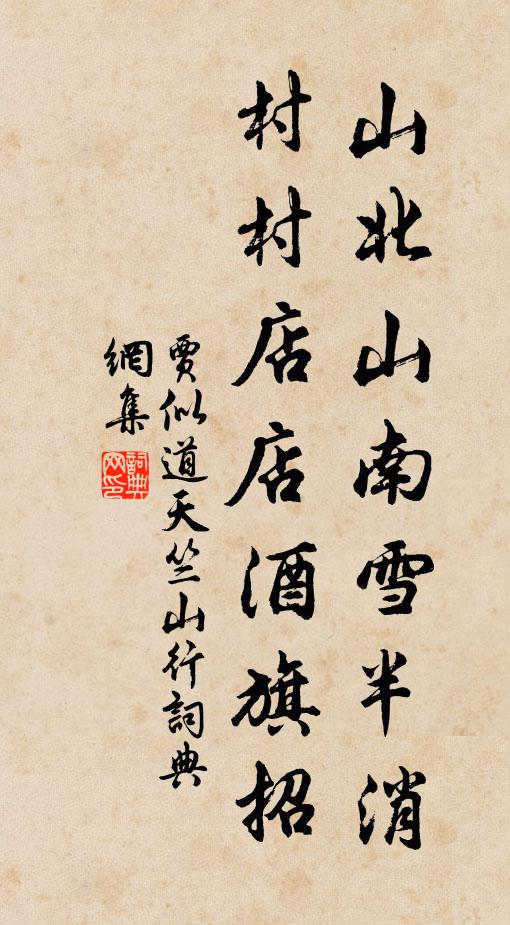 山北山南雪半消
村村店店酒旗招
賈似道天竺山行詞典
網集
詞典
网印